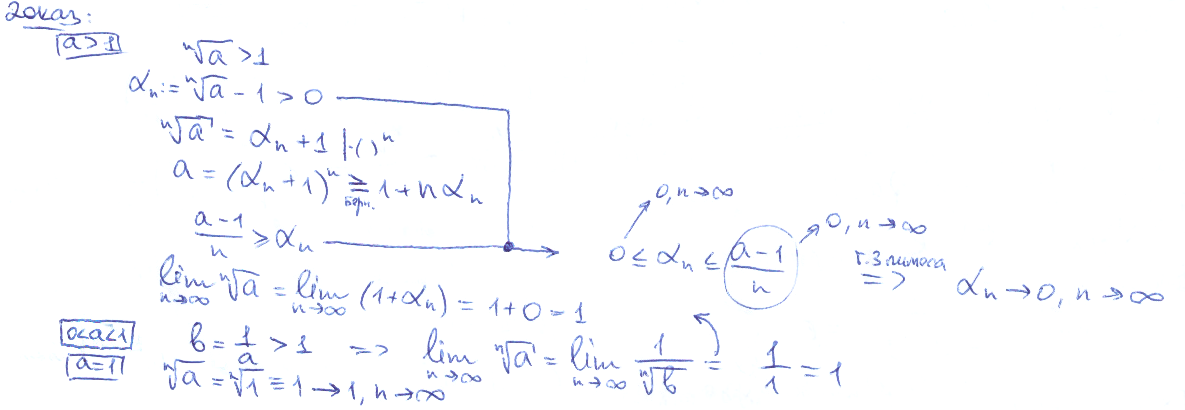 Доказ:
a>1
ⁿ√a > 1
αₙ := ⁿ√a - 1 > 0
ⁿ√a = αₙ + 1 |·()ⁿ
a = (αₙ + 1)ⁿ ≥ 1 + nαₙ
Берн.
(a-1)/n ≥ αₙ
0, n→∞
0 ≤ αₙ ≤ (a-1)/n
0, n→∞
т. 3 лимеса
=> αₙ → 0, n→∞
lim n→∞ ⁿ√a = lim n→∞ (1+αₙ) = 1+0 = 1
0<a<1
b = 1/a > 1 => lim n→∞ ⁿ√a = lim n→∞ 1/ⁿ√b = 1/1 = 1
a=1
ⁿ√a = ⁿ√1 ≡ 1 → 1, n→∞